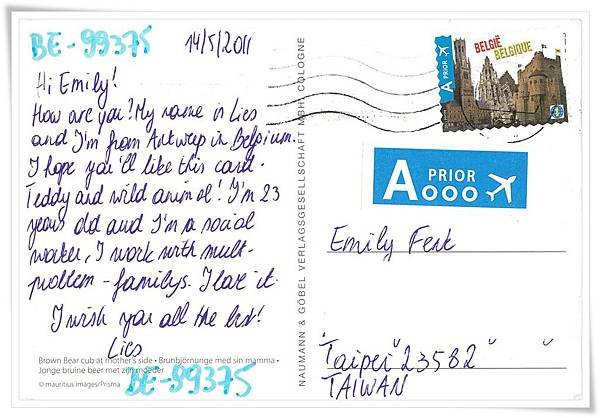 BE-99375
14/5/2011
Hi Emily!
How are you? My name is Lies
and I'm from Antwerp in Belgium.
I hope you'll like this card.
Teddy and wild animal! I'm 23
years old and I'm a social
worker, I work with mult-
problem-familys. I love it.
I wish you all the best!
Lies
Brown Bear cub at mother's side • Brunbjörnunge med sin mamma •
Jonge bruine beer met zijn moeder
© mauritius images/Prisma
BE-99375
NAUMANN & GÖBEL VERLAGSGESELLSCHAFT MBH, COLOGNE
A PRIOR
BELGIË
BELGIQUE
A PRIOR
Emily
"Taipei" 23582 " "
TAIWAN